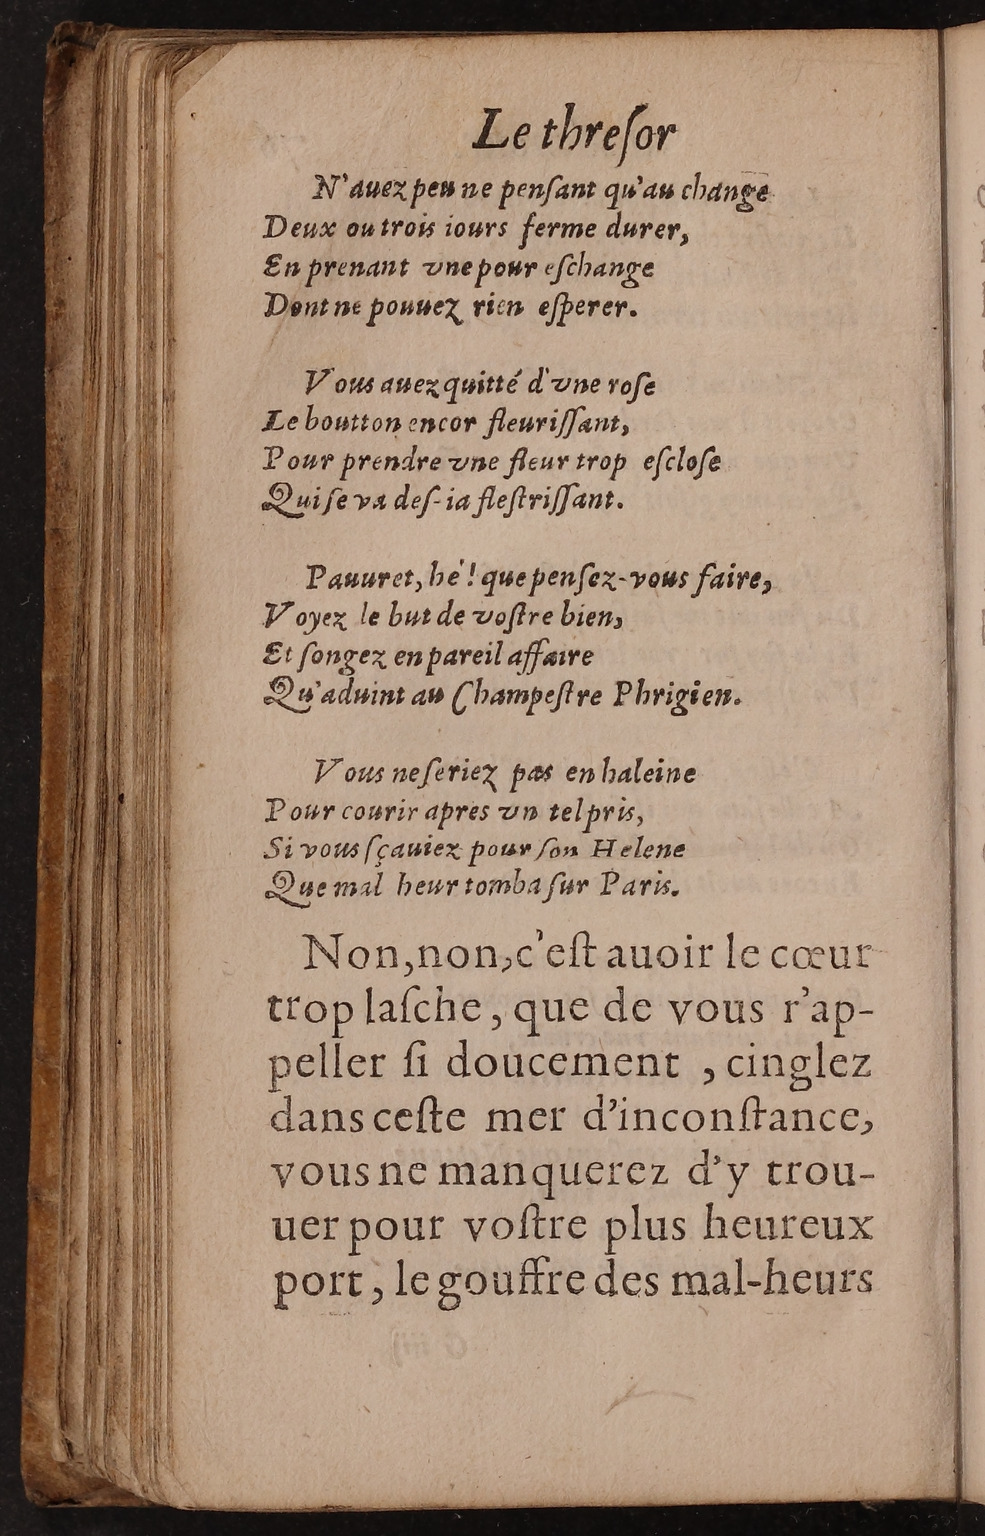 Le threſor
N'auez peu ne penſant qu'au change
Deux ou trois iours ferme durer,
En prenant vne pour eſchange
Dont ne pouuez rien eſperer.
Vous auez quitté d'vne roſe
Le boutton encor fleuriſſant,
Pour prendre vne fleur trop eſcloſe
Qui ſe va deſ-ia fleſtriſſant.
Pauuret, hé! que penſez-vous faire,
Voyez le but de voſtre bien,
Et ſongez en pareil affaire
Qu'aduint au Champeſtre Phrigien.
Vous ne ſeriez pas en haleine
Pour courir apres vn tel pris,
Si vous ſçauiez pour ſon Helene
Que mal heur tomba ſur Paris.
Non, non, c'eſt auoir le cœur
trop laſche, que de vous r'ap-
peller ſi doucement, cinglez
dans ceſte mer d'inconſtance,
vous ne manquerez d'y trou-
uer pour voſtre plus heureux
port, le gouffre des mal-heurs